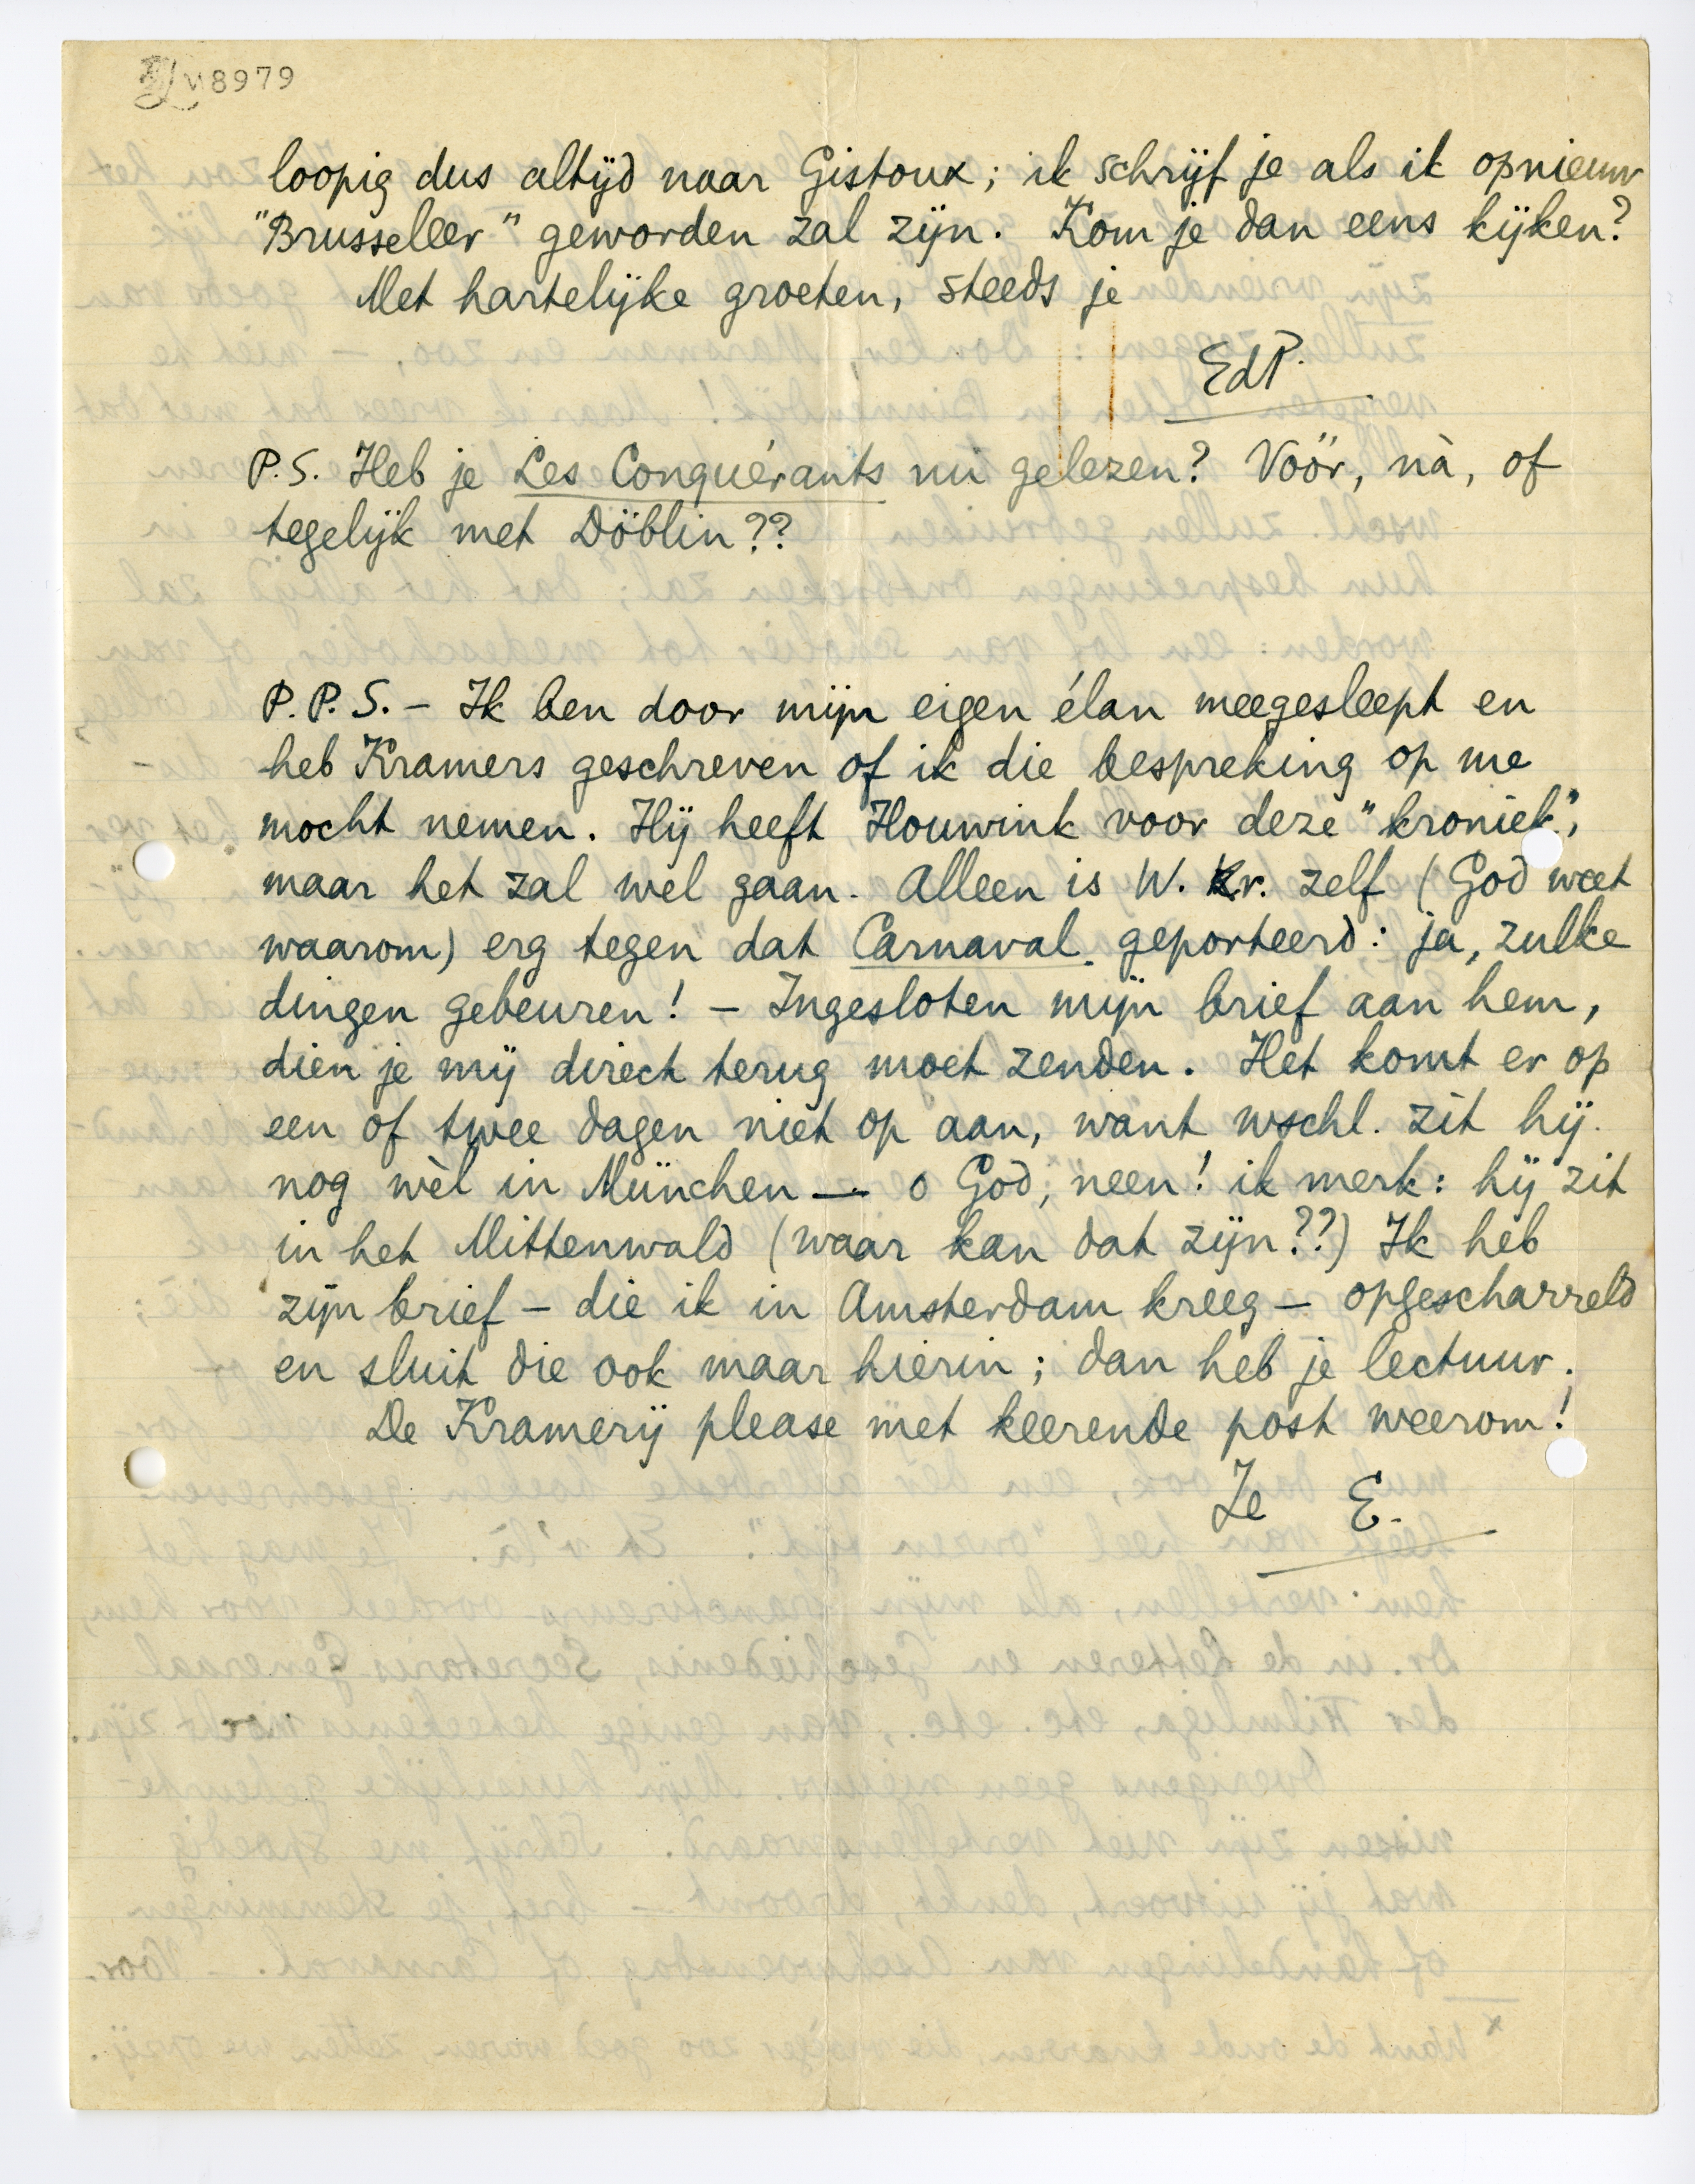 8979
loopig dus altijd naar Gistoux; ik schrijf je als ik opnieuw
"Brusseleer" geworden zal zijn. Kom je dan eens kijken?
Met hartelijke groeten, steeds je
EdP.
P.S. Heb je Les Conquérants nu gelezen? Vóór, nà, of
tegelijk met Döblin??
P.P.S. – Ik ben door mijn eigen élan meegesleept en
heb Kramers geschreven of ik die bespreking op me
mocht nemen. Hij heeft Houwink voor deze "kroniek",
maar het zal wel gaan. Alleen is W. Kr. zelf (God weet
waarom) erg tegen dat Carnaval geporteerd: ja, zulke
dingen gebeuren! – Ingesloten mijn brief aan hem,
dien je mij direct terug moet zenden. Het komt er op
een of twee dagen niet op aan, want wschl. zit hij
nog wèl in München — o God, neen! ik merk: hij zit
in het Mittenwald (waar kan dat zijn??) Ik heb
zijn brief – die ik in Amsterdam kreeg – opgescharreld
en sluit die ook maar hierin; dan heb je lectuur.
De Kramerij please met keerende post weerom!
Je E.